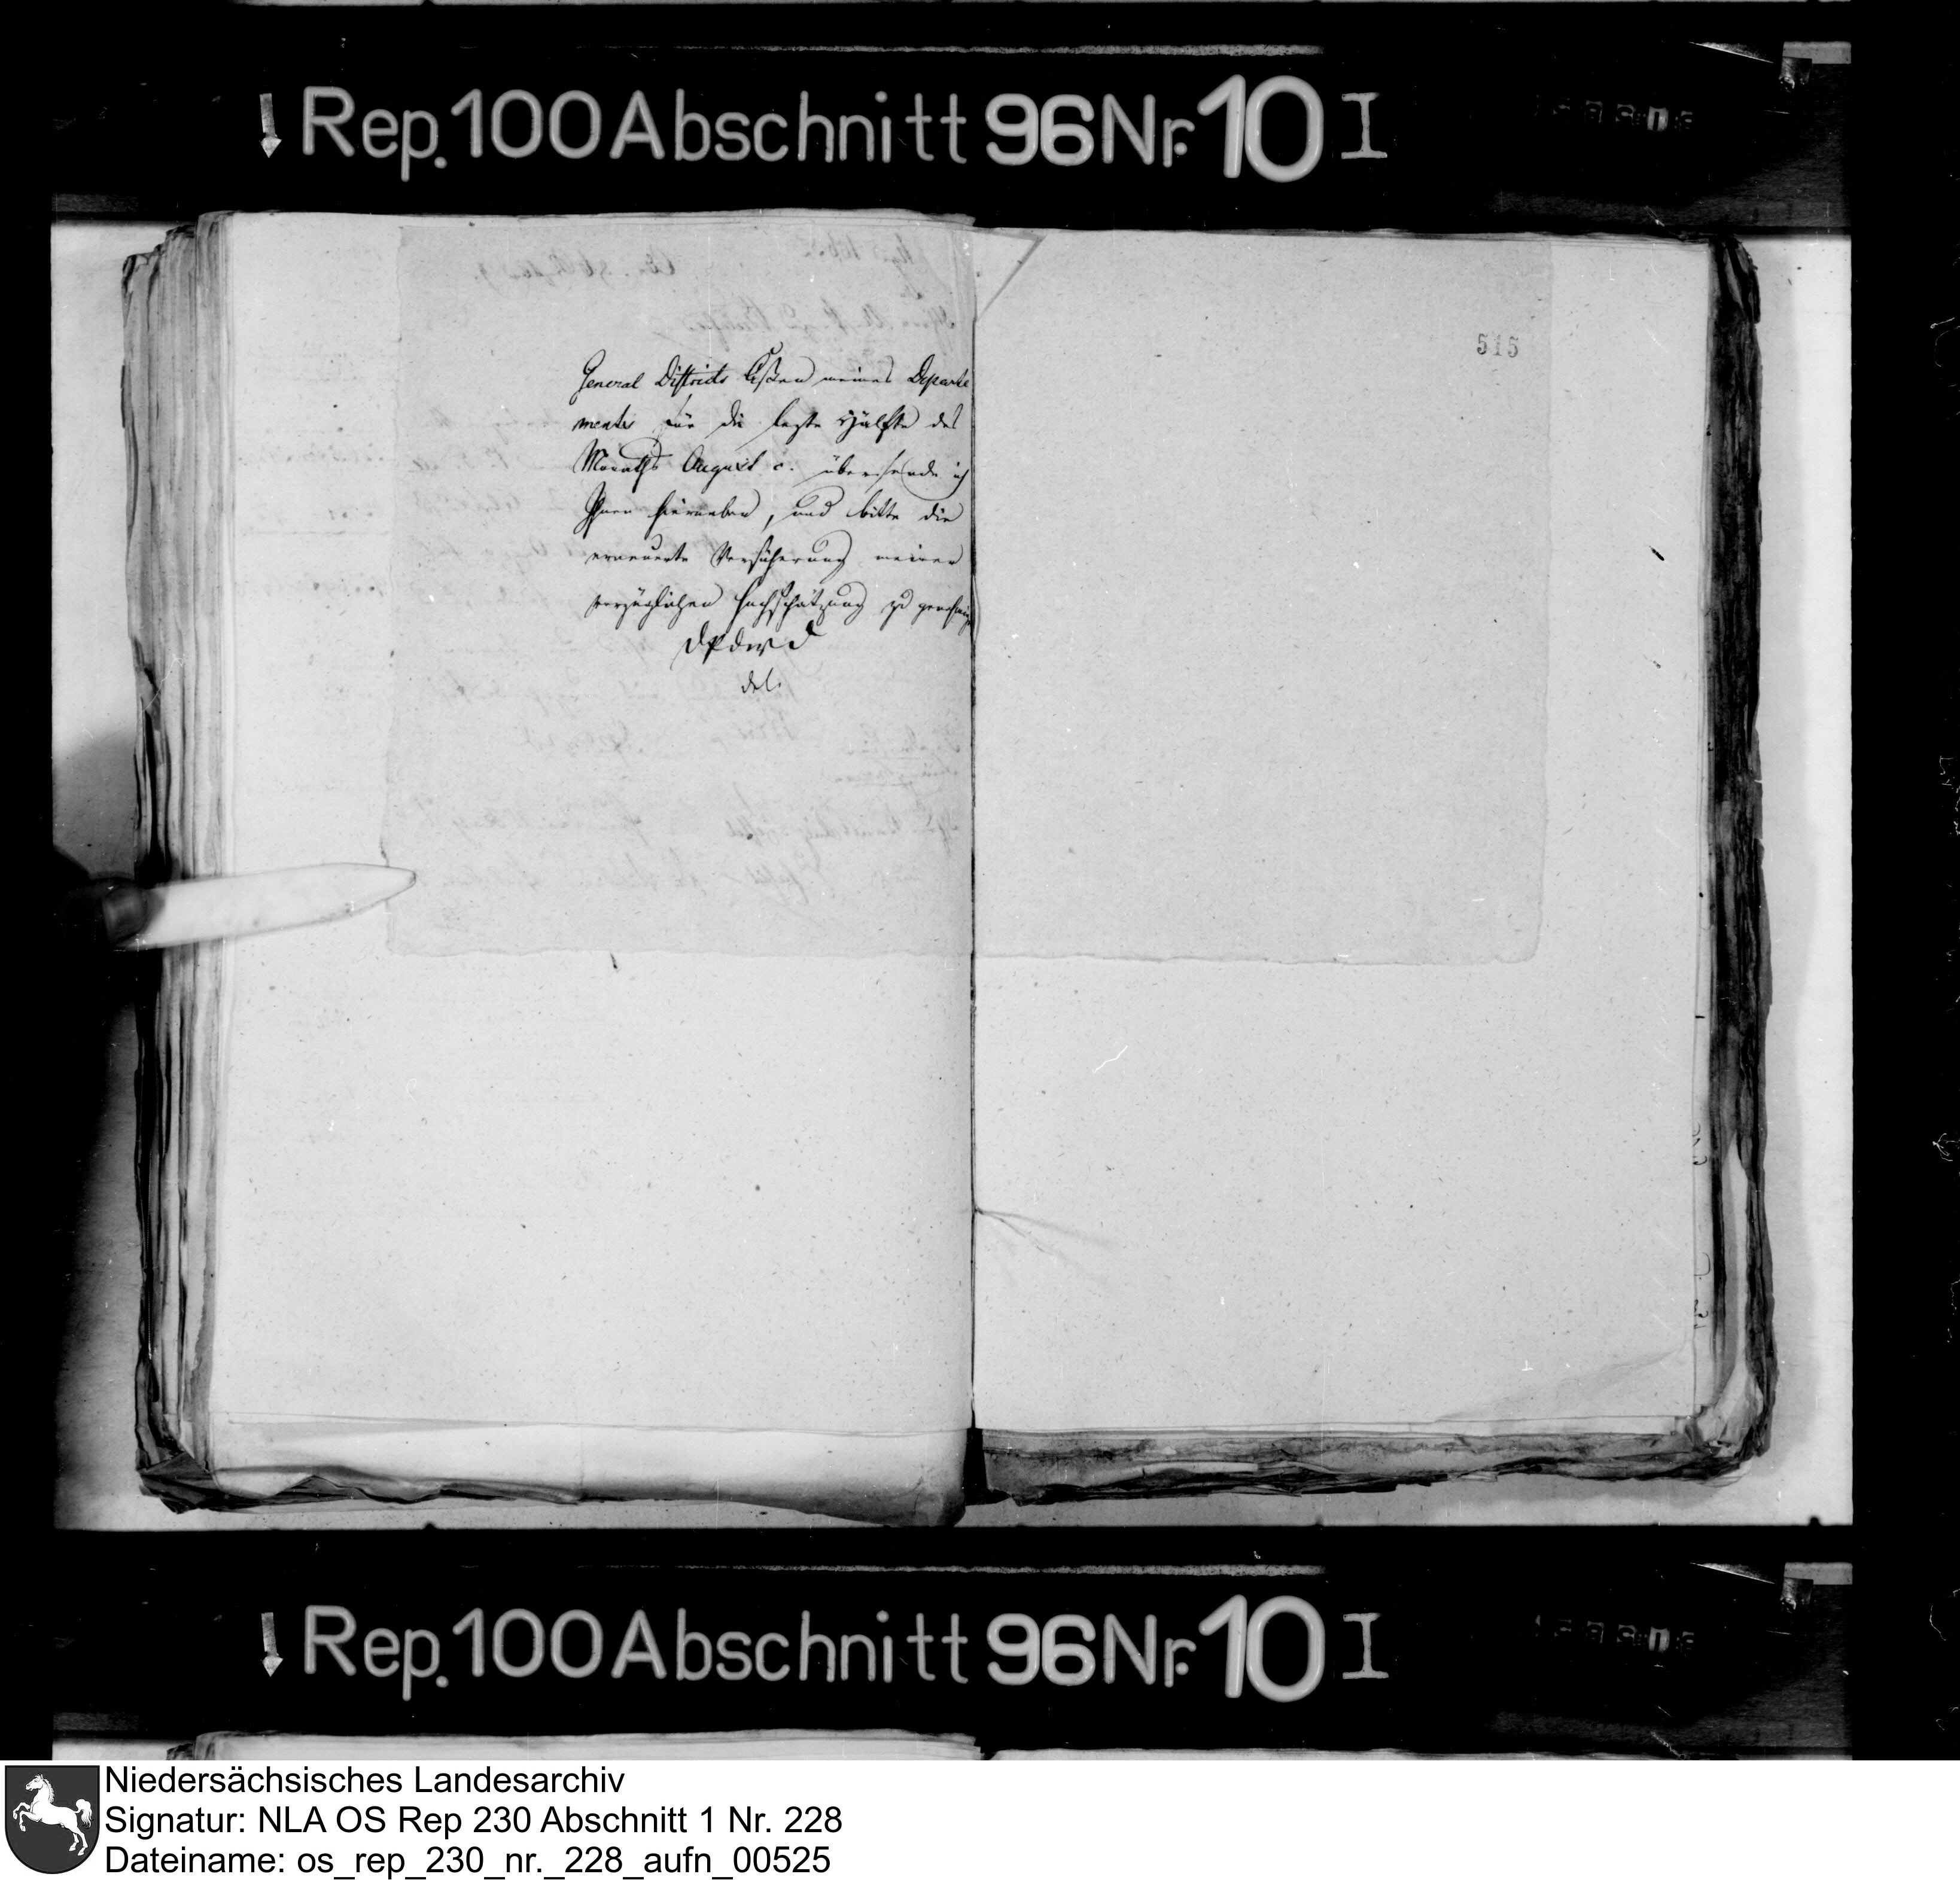 Rep. 100 Abschnitt 96 Nr. 10 I
515
General Districts Caßen meines Departe
ments für die lezte Hälfte des
Monaths August c. übersende ich
Ihnen hierneben, und bitte die
erneuerte Versicherung meiner
vorzüglichen Hochschätzung zu genehmig
Rep. 100 Abschnitt 96 Nr. 10 I
Niedersächsisches Landesarchiv
Signatur: NLA OS Rep 230 Abschnitt 1 Nr. 228
Dateiname: os_rep_230_nr._228_aufn_00525